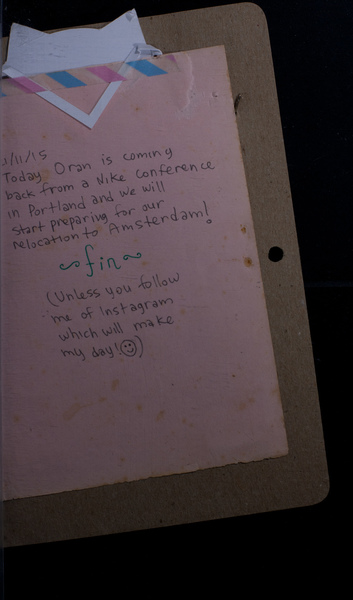 1/11/15
Today Oran is coming
back from a Nike conference
in Portland and we will
start preparing for our
relocation to Amsterdam!
~fin~
(Unless you follow
me of Instagram
which will make
my day!☺)